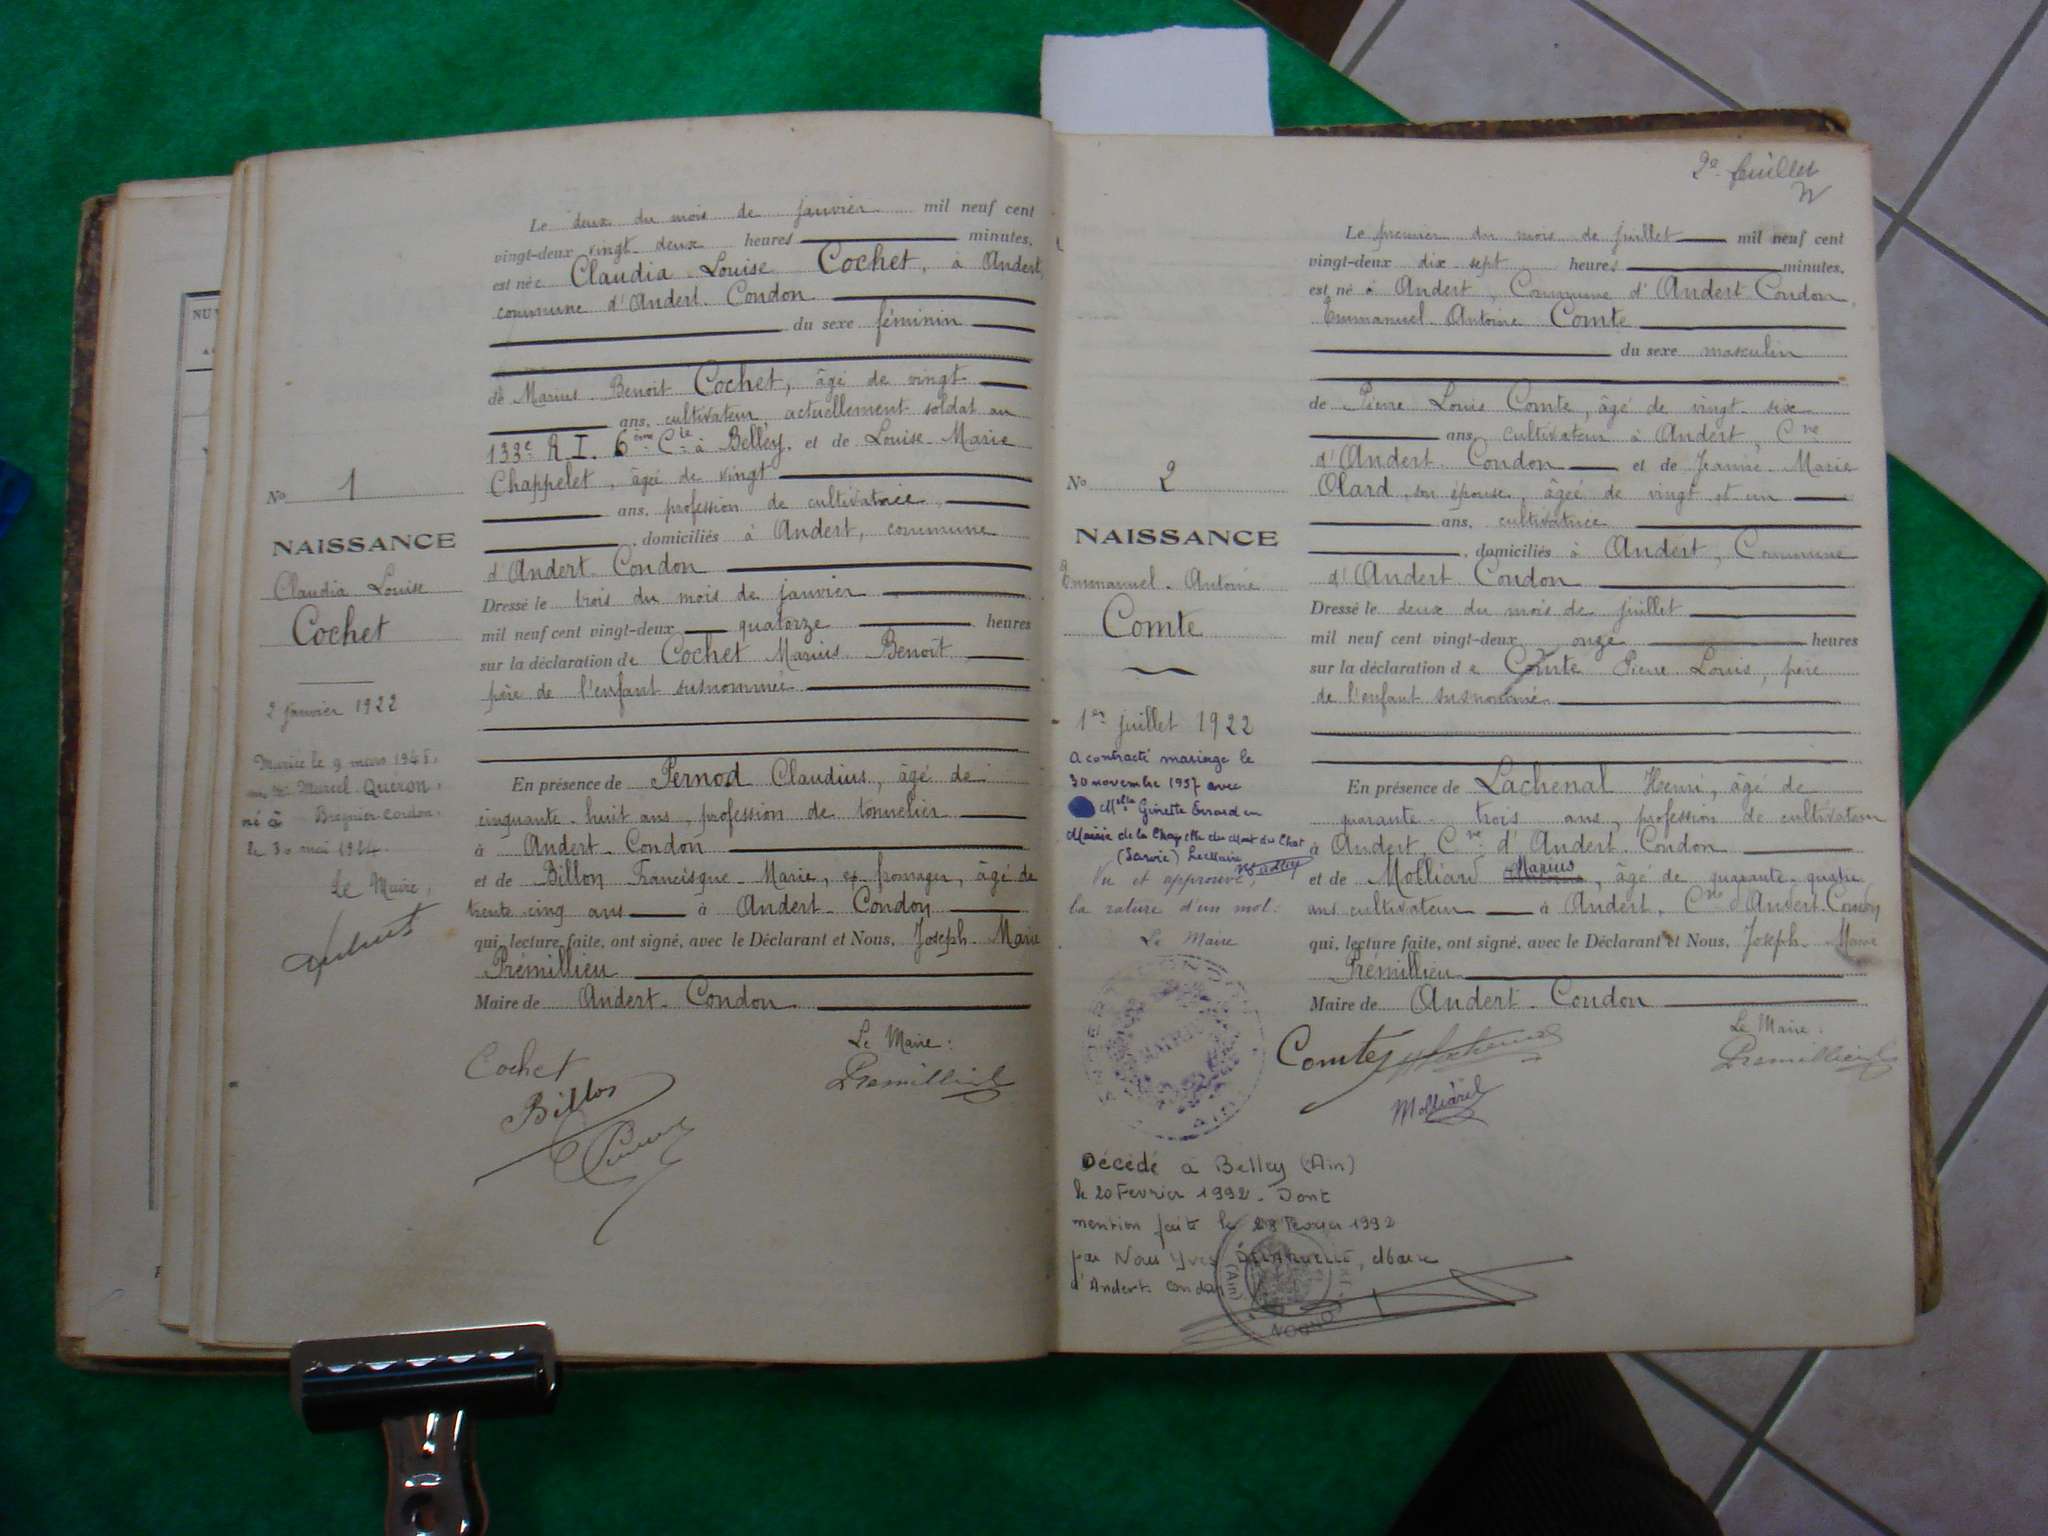 NU
Le deux du mois de janvier mil neuf cent
vingt-deux vingt deux heures minutes,
est née Claudia Louise Cochet, à Andert,
commune d'Andert-Condon
du sexe féminin
de Marius Benoit Cochet, âgé de vingt
ans, cultivateur actuellement soldat au
133e R I. 6ème Cie à Belley, et de Louise-Marie
Chappelet, âgée de vingt
ans, profession de cultivatrice,
, domiciliés à Andert, commune
d'Andert-Condon
Dressé le trois du mois de janvier
mil neuf cent vingt-deux quatorze heures
sur la déclaration de Cochet Marius Benoît
père de l'enfant susnommée
En présence de Pernod Claudius, âgé de
cinquante-huit ans, profession de tonnelier
à Andert-Condon
et de Billon Francisque-Marie, fromager, âgé de
trente-cinq ans à Andert-Condon
qui, lecture faite, ont signé, avec le Déclarant et Nous, Joseph-Marie
Prémillieu
Maire de Andert-Condon
Le Maire:
Cochet
Billon
Premillieu
No 1
NAISSANCE
Claudia Louise
Cochet
2 janvier 1922
Mariée le 9 mars 1945,
Marcel Quéron,
né à Brégnier-Cordon,
le 30 mai 1914.
Le Maire,
2e feuillet
Le premier du mois de juillet mil neuf cent
vingt-deux dix sept heures minutes,
est né à Andert, Commune d'Andert-Condon,
Emmanuel Antoine Comte
du sexe masculin
de Pierre Louis Comte, âgé de vingt-six
ans, cultivateur à Andert, Cne
d'Andert-Condon et de Jeanne-Marie
Olard, son épouse, âgée de vingt et un
ans, cultivatrice
, domiciliés à Andert, Commune
d'Andert Condon
Dressé le deux du mois de juillet
mil neuf cent vingt-deux onze heures
sur la déclaration de Comte Pierre Louis, père
de l'enfant susnommé
En présence de Lachenal Henri, âgé de
quarante-trois ans, profession de cultivateur
à Andert, Cne d'Andert-Condon
et de Molliard Marius, âgé de quarante-quatre
ans cultivateur à Andert, Cne d'Andert-Condon
qui, lecture faite, ont signé, avec le Déclarant et Nous, Joseph-Marie
Prémillieu
Maire de Andert-Condon
Le Maire:
Comte
Lachenal
Premillieu
Molliard
No 2
NAISSANCE
Emmanuel-Antoine
Comte
1er juillet 1922
a contracté mariage le
30 novembre 1957 avec
Melle Ginette en
Mairie de la Chapelle du Mont du Chat
(Savoie) Le Maire
Vu et approuvé,
la rature d'un mot:
Le Maire
Décédé à Belley (Ain)
le 20 Fevrier 1992. Dont
mention faite le 28 Fevrier 1992
par Nous Yves, Maire
d'Andert-Condon
(Ain)